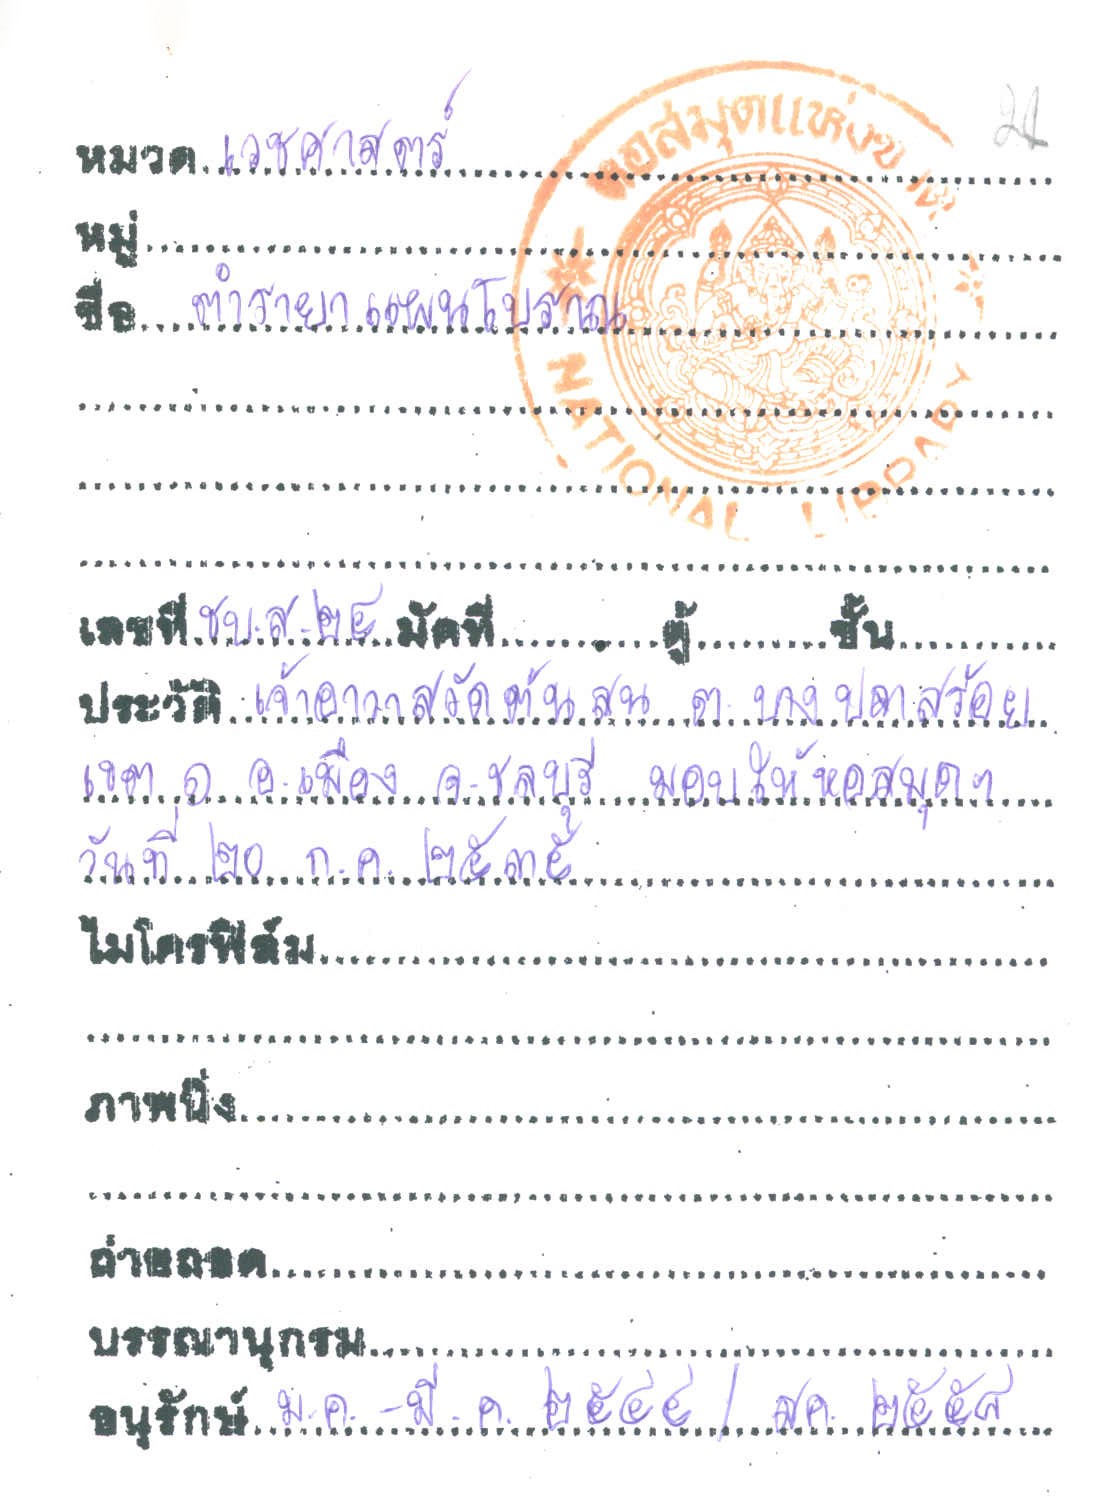 24
หอสมุดแห่งชาติ
หมวด เวชศาสตร์
หมู่
ชื่อ ตำรายาแผนโบราณ
NATIONAL LIBRARY
เลขที่ ชบ.ส.๒๔ มัดที่ ตู้ ชั้น
ประวัติ เจ้าอาวาสวัดต้นสน ต.บางปลาสร้อย
เขต ๑ อ.เมือง จ.ชลบุรี มอบให้หอสมุดฯ
วันที่ ๒๐ ก.ค. ๒๕๓๕
ไมโครฟิล์ม
ภาพนิ่ง
ถ่ายถอด
บรรณานุกรม
อนุรักษ์ ม.ค.-มี.ค. ๒๕๔๔ / สค. ๒๕๕๘